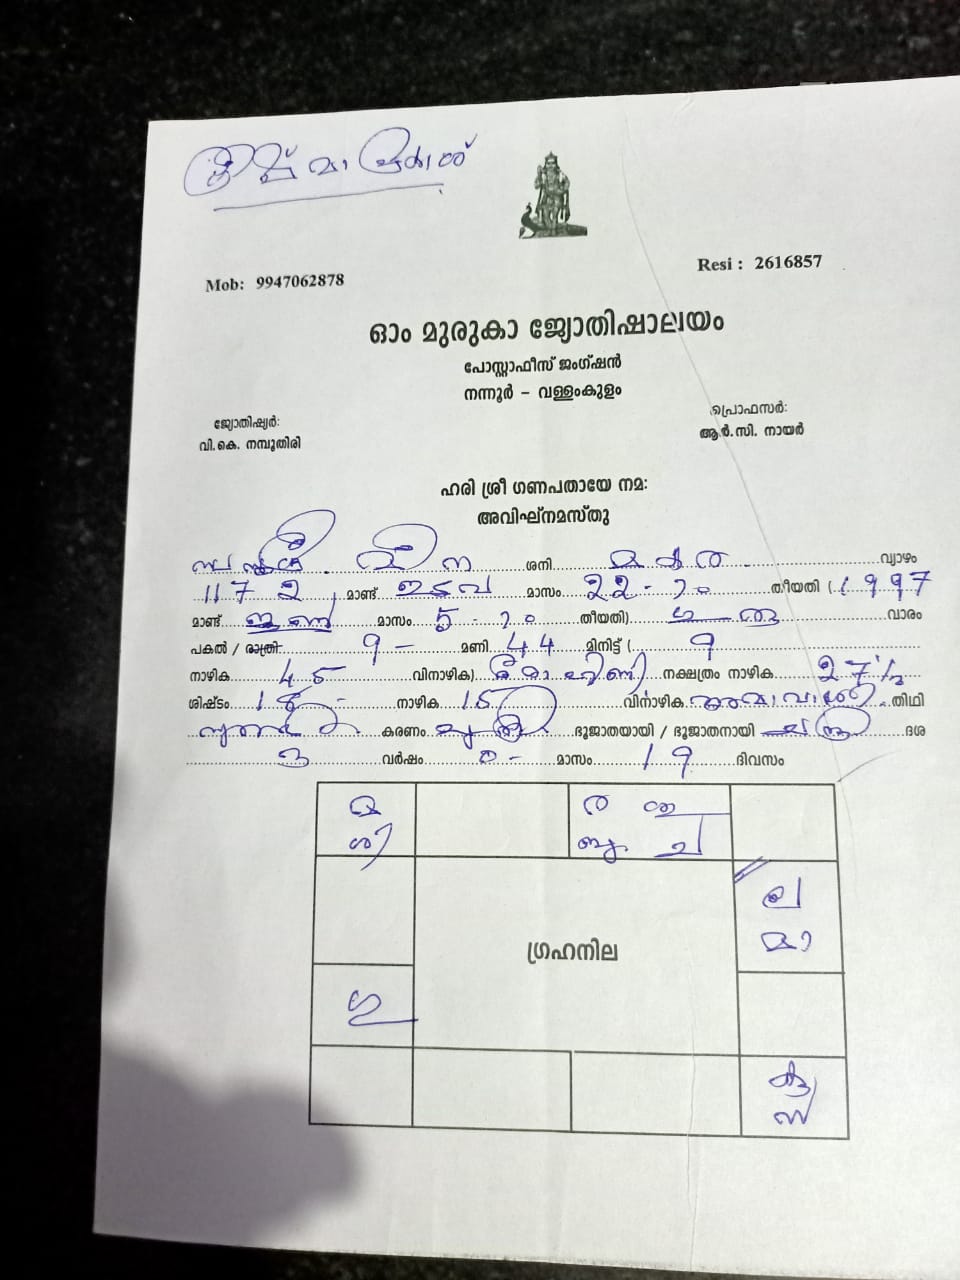 Mob: 9947062878
Resi : 2616857
ഓം മുരുകാ ജ്യോതിഷാലയം
പോസ്റ്റാഫീസ് ജംഗ്ഷൻ
നന്നൂർ – വള്ളംകുളം
ജ്യോതിഷ്യർ:
വി.കെ. നമ്പൂതിരി
പ്രൊഫസർ:
ആർ.സി. നായർ
ഹരി ശ്രീ ഗണപതായേ നമ:
അവിഘ്നമസ്തു
മീന ശനി മകര വ്യാഴം
1172 മാണ്ട് ഇടവ മാസം 22-ാം തീയതി (1997
മാണ്ട് ജൂൺ മാസം 5-ാം തീയതി) വാരം
പകൽ / രാത്രി 9- മണി 44 മിനിട്ട് (9
നാഴിക 45 വിനാഴിക) രോഹിണി നക്ഷത്രം നാഴിക 27½
ശിഷ്ടം 18- നാഴിക 15 വിനാഴിക അമാവാസി തിഥി
കരണം പുത്രി ഭൂജാതയായി / ഭൂജാതനായി ചന്ദ്ര ദശ
3 വർഷം 0- മാസം 19 ദിവസം
മ ര ശു
ശി ബു ച
ല
മാ
ഗ്രഹനില
ഗു
കു
സ